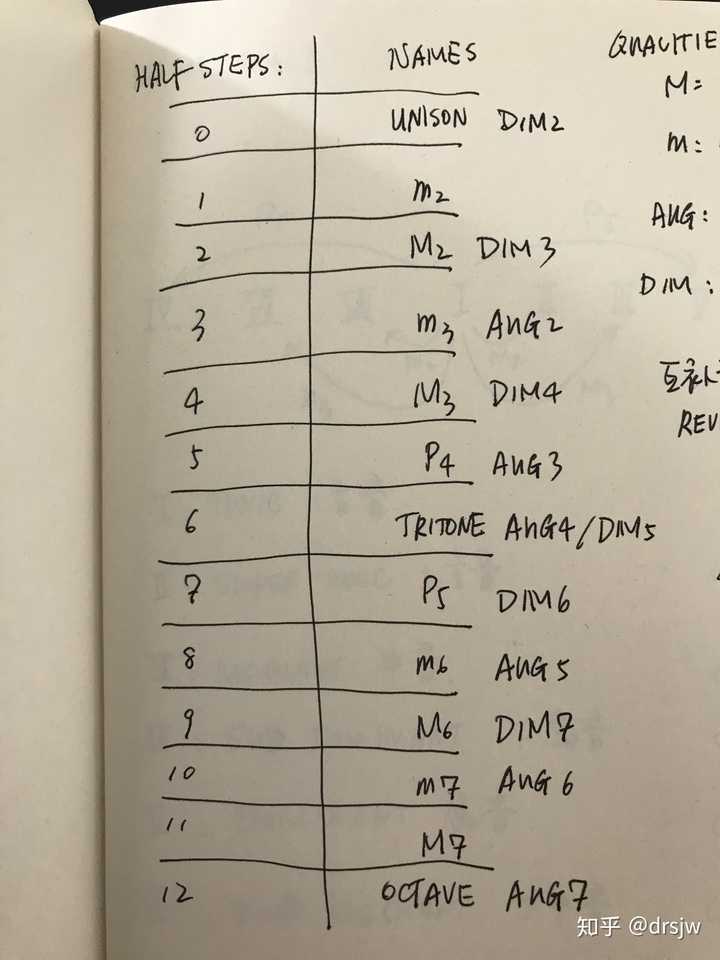 HALF STEPS: NAMES QUALITIE
M=
0 UNISON DIM2
m:
1 m2
AUG:
2 M2 DIM3
DIM:
3 m3 AUG2
4 M3 DIM4
REV
5 P4 AUG3
6 TRITONE AUG4/DIM5
7 P5 DIM6
8 m6 AUG5
9 M6 DIM7
10 m7 AUG6
11 M7
12 OCTAVE AUG7
知乎 @drsjw